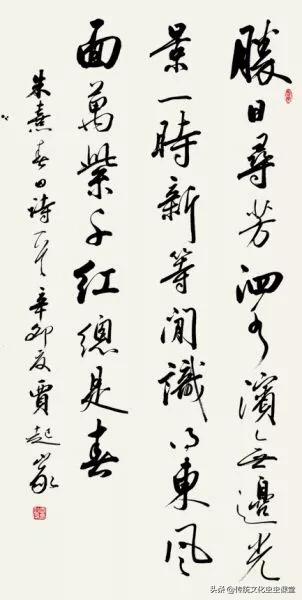 勝日尋芳泗水濱無邊光
景一時新等閒識得東風
面萬紫千紅總是春
朱熹春日詩一首辛卯夏賈起家
头条@传统文化虫虫课堂